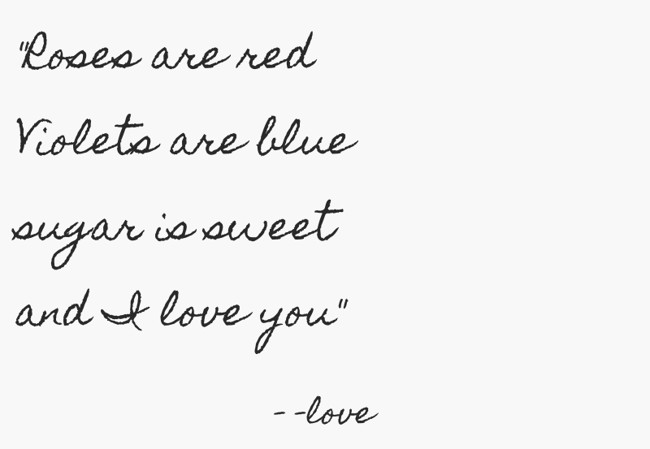 "Roses are red
Violets are blue
sugar is sweet
and I love you"
--love